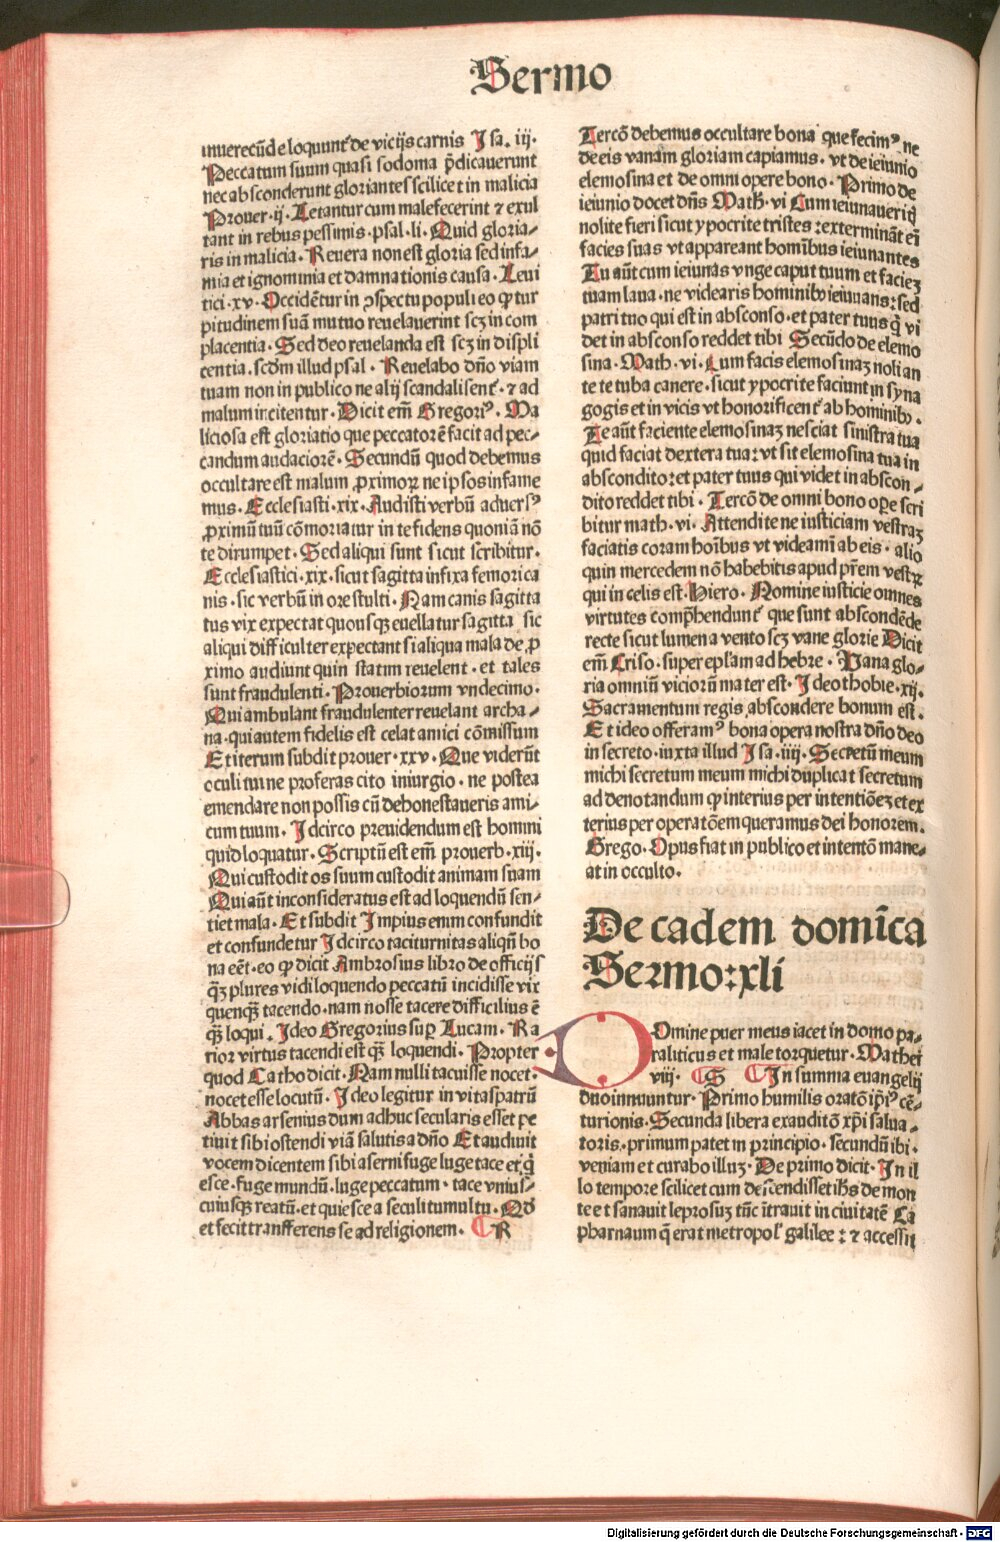 Sermo
inuerecūde loquunť de vicijs carnis Isa. iij.
Peccatum suum quasi sodoma p̄dicauerunt
nec absconderunt gloriantes scilicet in malicia
Prouer. ij. Letantur cum malefecerint ⁊ exul
tant in rebus pessimis. psal. li. Quid gloria-
ris in malicia. Reuera non est gloria sed infa-
mia et ignominia et damnationis causa. Leui
tici. xv. Occidētur in ↄspectu populi eo ꝙ tur
pitudinem suā mutuo reuelauerint scꝫ in com
placentia. Sed deo reuelanda est scꝫ in displi
centia. scd̄m illud psal. Reuelabo dn̄o viam
tuam non in publico ne alij scandalisenť. ⁊ ad
malum incitentur. Dicit em̄ Gregoriꝰ. Ma
liciosa est gloriatio que peccatorē facit ad pec-
candum audaciorē. Secundū quod debemus
occultare est malum ꝓximoꝝ ne ipsos infame
mus. Ecclesiasti. xix. Audisti verbū aduersꝰ
ꝓximū tuū cōmoriatur in te fidens quoniā nō
te dirumpet. Sed aliqui sunt sicut scribitur.
Ecclesiastici. xix. sicut sagitta infixa femori ca
nis. sic verbū in ore stulti. Nam canis sagitta
tus vix expectat quousqꝫ euellatur sagitta sic
aliqui difficulter expectant si aliqua mala de ꝓ
ximo audiunt quin statim reuelent. et tales
sunt fraudulenti. Prouerbiorum vndecimo.
Qui ambulant fraudulenter reuelant archa-
na. qui autem fidelis est celat amici cōmissum
Et iterum subdit prouer. xxv. Que viderūt
oculi tui ne proferas cito in iurgio. ne postea
emendare non possis cū dehonestaueris ami-
cum tuum. Idcirco preuidendum est homini
quid loquatur. Scriptū est em̄ prouerb. xiij.
Qui custodit os suum custodit animam suam
Qui aūt inconsideratus est ad loquendū sen-
tiet mala. Et subdit Impius enim confundit
et confundetur Idcirco taciturnitas aliqn̄ bo
na eēt. eo ꝙ dicit Ambrosius libro de officijs
qꝫ plures vidi loquendo peccatū incidisse vix
quenqꝫ tacendo. nam nosse tacere difficilius ē
qꝫ loqui. Ideo Gregorius suꝑ Lucam. Ra
rior virtus tacendi est qꝫ loquendi. Propter
quod Catho dicit. Nam nulli tacuisse nocet.
nocet esse locutū. Ideo legitur in vitaspatrū
Abbas arsenius dum adhuc secularis esset pe
tiuit sibi ostendi viā salutis a dn̄o Et audiuit
vocem dicentem sibi arseni fuge luge tace et q̄
esce. fuge mundū. luge peccatum. tace vnius-
cuiusqꝫ reatū. et quiesce a seculi tumultu. Qd̄
et fecit transferens se ad religionem. ¶ R
Tercō debemus occultare bona que fecimꝰ. ne
de eis vanam gloriam capiamus. vt de ieiunio
elemosina et de omni opere bono. Primo de
ieiunio docet dn̄s Math. vi Cum ieiunaueritꝭ
nolite fieri sicut ypocrite tristes: extermināt em̄
facies suas vt appareant hominibus ieiunantes
Tu aūt cum ieiunas vnge caput tuum et faciem
tuam laua. ne videaris hominibꝰ ieiunans: sed
patri tuo qui est in absconso. et pater tuus q̄ vi
det in absconso reddet tibi Secūdo de elemo
sina. Math. vi. Cum facis elemosinaꝫ noli an
te te tuba canere. sicut ypocrite faciunt in syna
gogis et in vicis vt honorificenť ab hominibꝰ.
Te aūt faciente elemosinaꝫ nesciat sinistra tua
quid faciat dextera tua: vt sit elemosina tua in
abscondito: et pater tuus qui videt in abscon-
dito reddet tibi. Tercō de omni bono oꝑe scri
bitur math. vi. Attendite ne iusticiam vestraꝫ
faciatis coram hoībus vt videamī ab eis. alio
quin mercedem nō habebitis apud pr̄em vestrꝝ
qui in celis est. Hiero. Nomine iusticie omnes
virtutes comp̄hendunť que sunt abscondēde
recte sicut lumen a vento scꝫ vane glorie Dicit
em̄ Criso. super epl̄am ad hebre. Vana glo-
ria omniū viciorū mater est. Ideo thobie. xij.
Sacramentum regis abscondere bonum est.
Et ideo offeramꝰ bona opera nostra dn̄o deo
in secreto. iuxta illud Isa. iiij. Secretū meum
michi secretum meum michi duplicat secretum
ad denotandum ꝙ interius per intentiōeꝫ et ex
terius per operatōem queramus dei honorem.
Grego. Opus fiat in publico et intentō mane-
at in occulto.
De eadem domīca
Sermo: xli
Domine puer meus iacet in domo pa-
raliticus et male torquetur. Mathei
viij. ¶ S ¶ In summa euangelij
duo innuuntur. Primo humilis oratō ip̄iꝰ cē-
turionis. Secunda libera exauditō xp̄i salua-
toris. primum patet in principio. secundū ibi.
veniam et curabo illuꝫ. De primo dicit. In il
lo tempore scilicet cum descendisset ih̄s de mon
te et sanauit leprosuꝫ tūc ītrauit in ciuitatē Ca
pharnaum q̄ erat metropol̓ galilee: ⁊ accessit
Digitalisierung gefördert durch die Deutsche Forschungsgemeinschaft - DFG